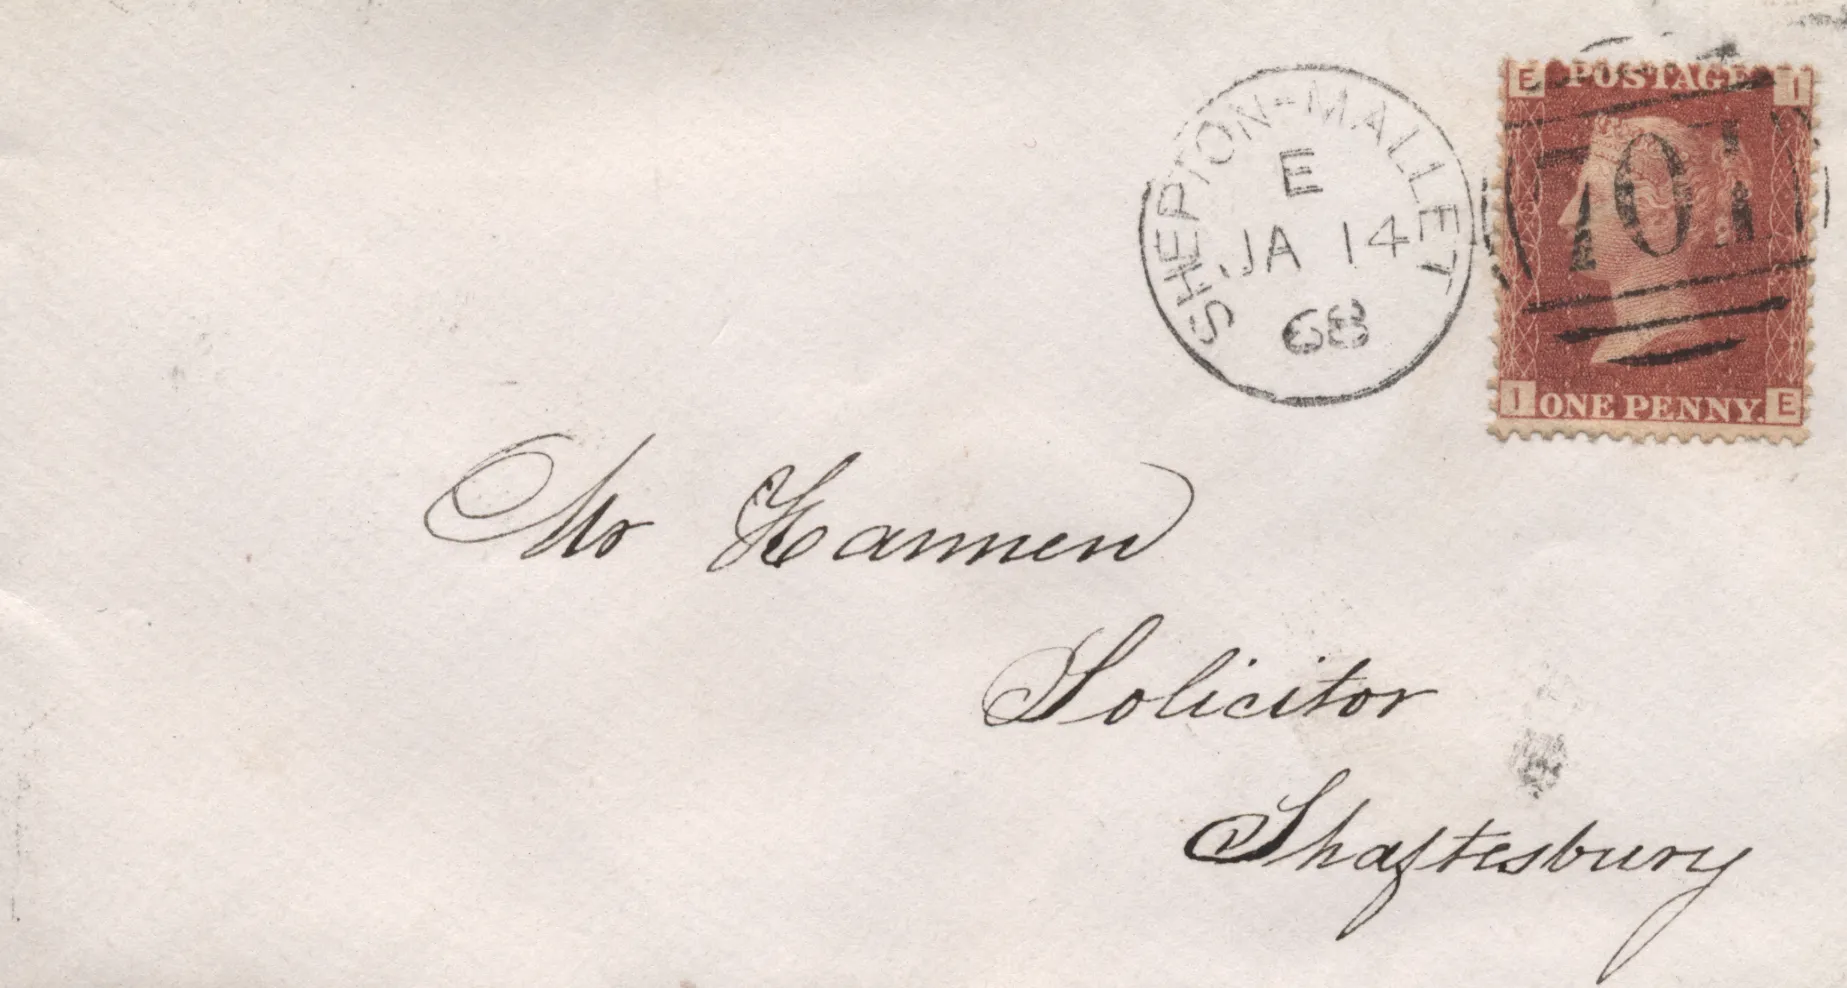 SHEPTON-MALLET
E
JA 14
68
E POSTAGE I
701
I ONE PENNY. E
Mr Hannen
Solicitor
Shaftesbury